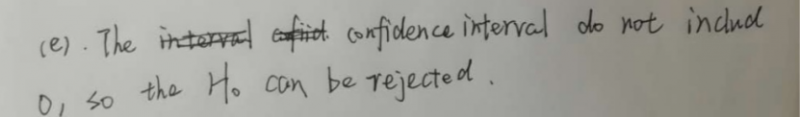 (e). The interval confid. confidence interval do not includ
0, so the H₀ can be rejected.